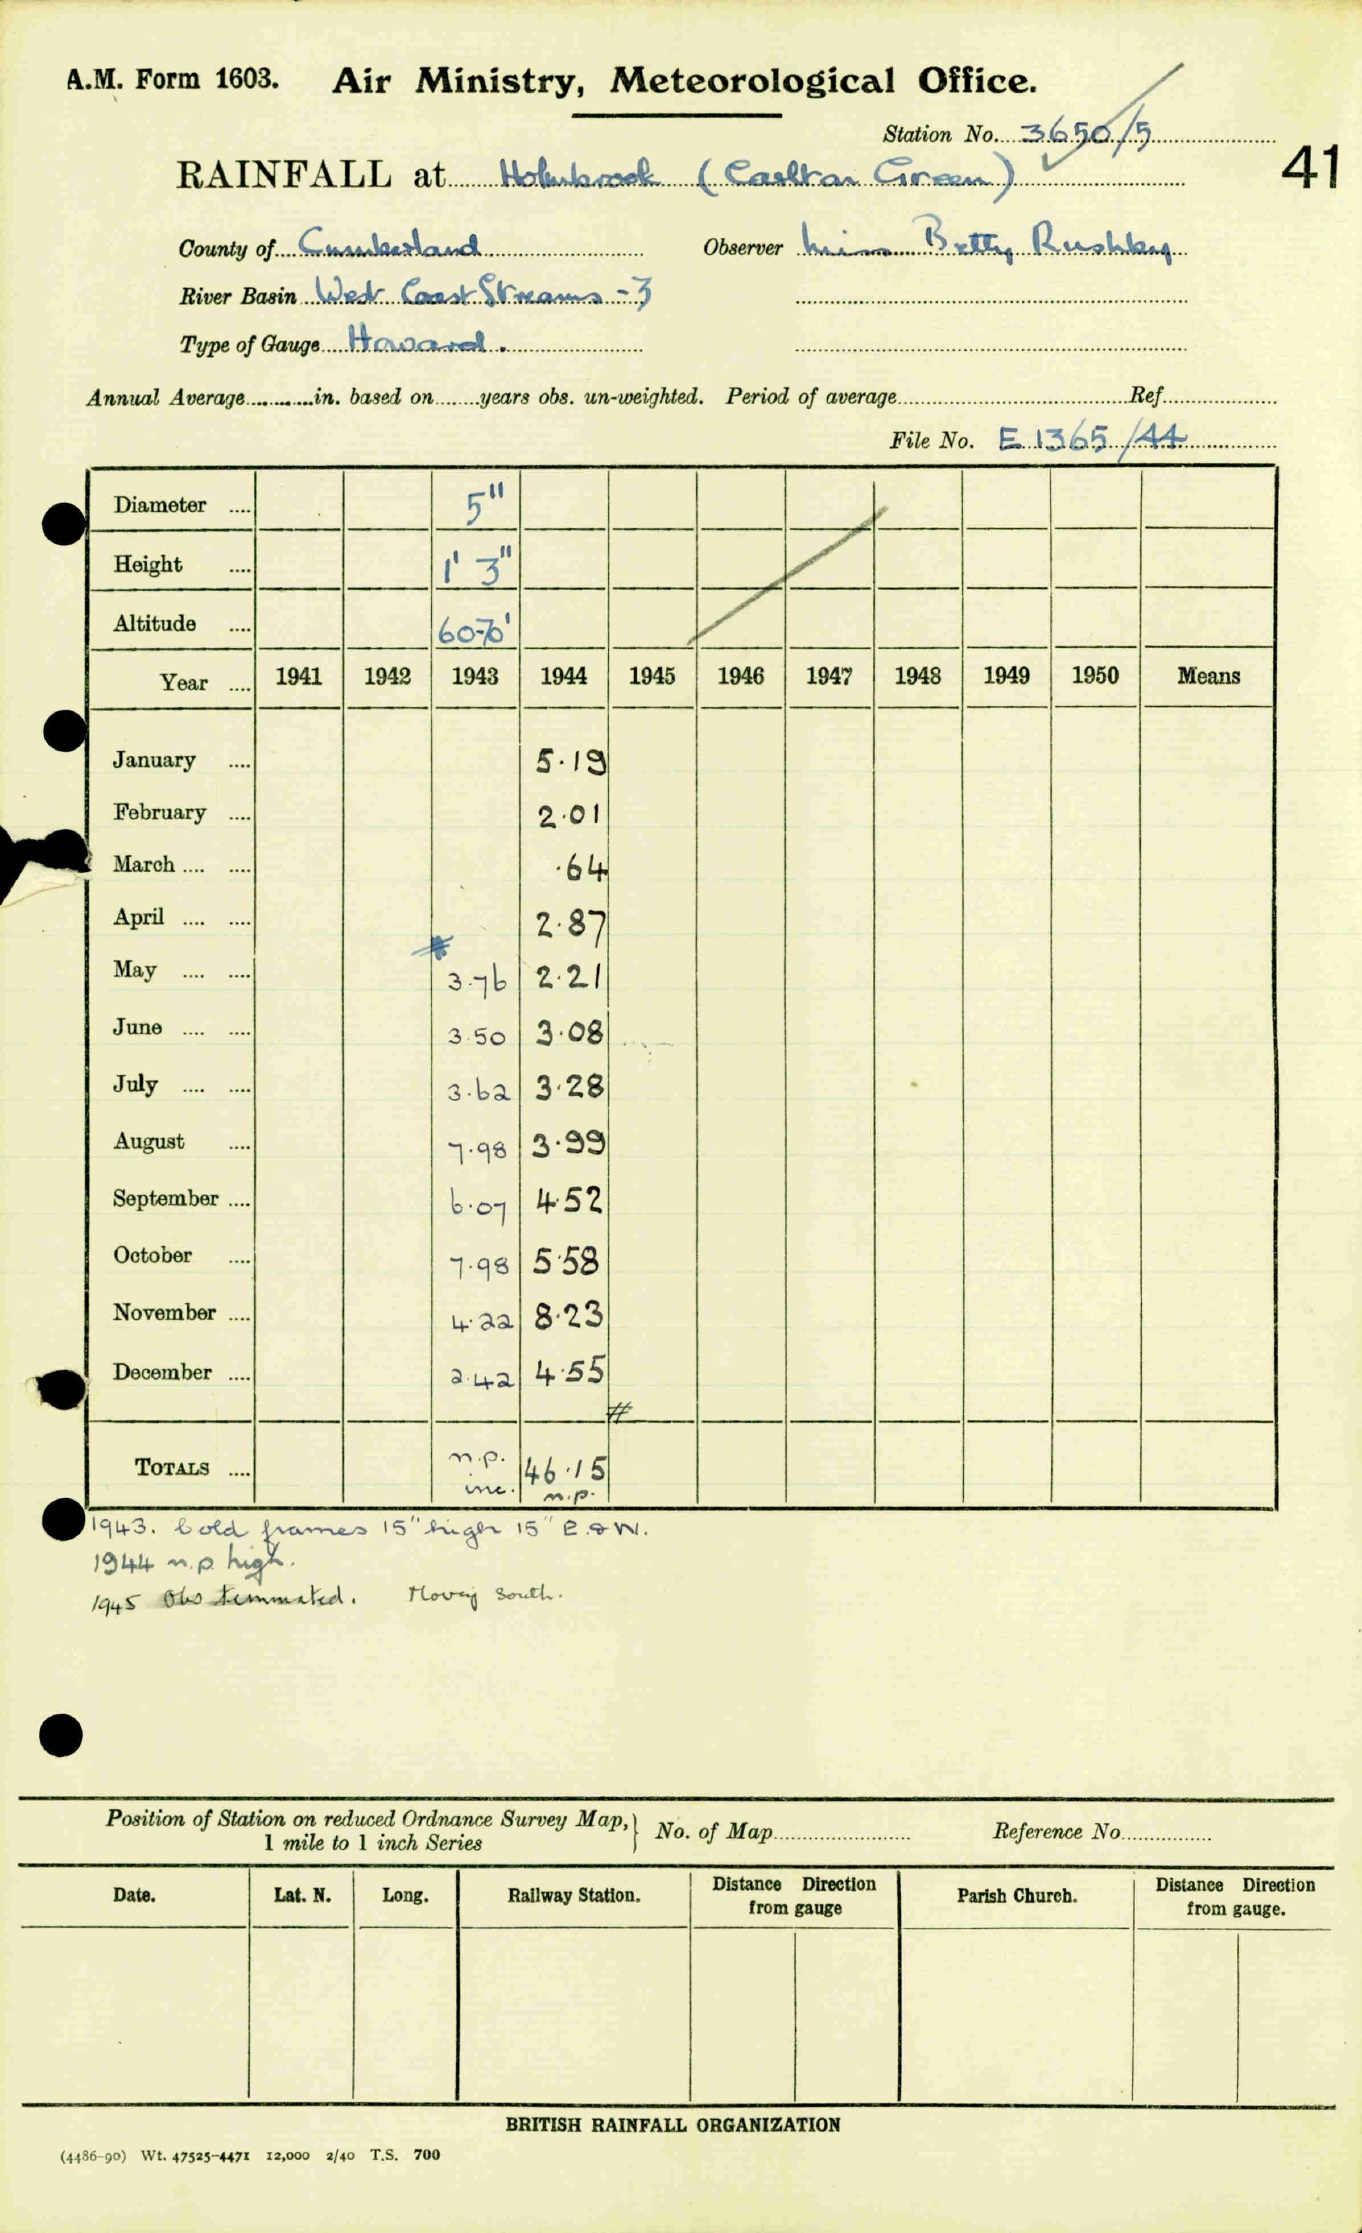 A.M. Form 1603. Air Ministry, Meteorological Office.
Station No. 3650/5
41
RAINFALL at Holmbrook (Carlton Green)
County of Cumberland Observer Miss Betty Rushby
River Basin West Coast Streams -3
Type of Gauge Howard.
Annual Average............in. based on........years obs. un-weighted. Period of average............Ref............
File No. E 1365/44
Diameter .... 5"
Height .... 1' 3"
Altitude .... 60-70'
Year .... 1941 1942 1943 1944 1945 1946 1947 1948 1949 1950 Means
January .... 5.19
February .... 2.01
March .... .... .64
April .... .... 2.87
May .... .... 3.76 2.21
June .... .... 3.50 3.08
July .... .... 3.62 3.28
August .... 7.98 3.99
September .... 6.07 4.52
October .... 7.98 5.58
November .... 4.22 8.23
December .... 2.42 4.55
TOTALS .... n.p. inc. 46.15 n.p.
1943. Cold frames 15" high 15" E. & W.
1944 n.p. high.
1945 Obs terminated. Moving South.
Position of Station on reduced Ordnance Survey Map, 1 mile to 1 inch Series } No. of Map............ Reference No............
Date. Lat. N. Long. Railway Station. Distance Direction from gauge Parish Church. Distance Direction from gauge.
BRITISH RAINFALL ORGANIZATION
(4486-90) Wt. 47525-4471 12,000 2/40 T.S. 700